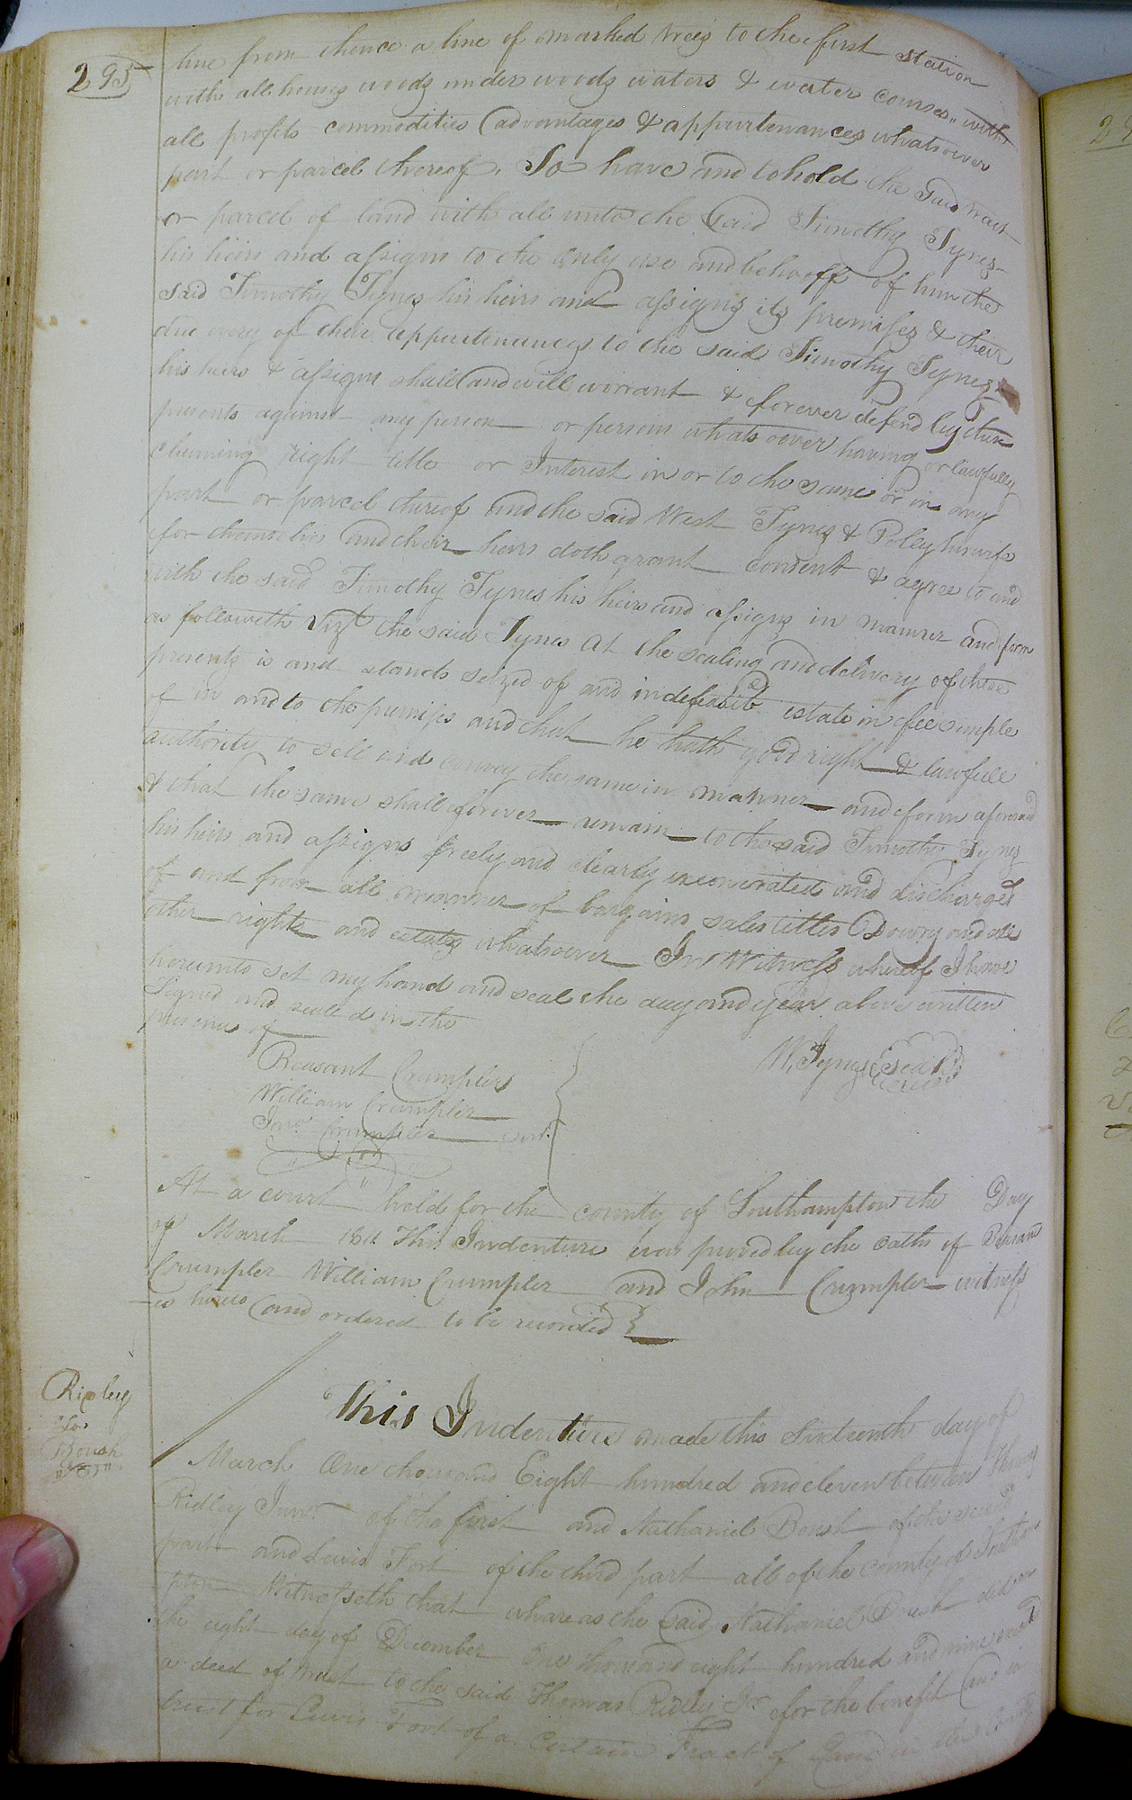 295
line from thence a line of marked trees to the first station
with all houses woods under woods waters & water courses with
all profits commodities advantages & appurtenances whatsoever
part or parcel thereof. To have and to hold the said tract
or parcel of land with all unto the said Timothy Tynes
his heirs and assigns to the only use and behooff of him the
said Timothy Tynes his heirs and assigns its premises & their
due every of their appurtenances to the said Timothy Tynes
his heirs & assigns shall and will warrant & forever defend by these
presents against any person or persons whatsoever having or lawfully
claiming right title or Interest in or to the same or in any
part or parcel thereof and the said West Tynes & Polley his wife
for themselves and their heirs doth grant consent & agree to and
with the said Timothy Tynes his heirs and assigns in manner and form
as followeth Vizt the said Tynes at the sealing and delivery of these
presents is and stands seized of and indefeasib estate in fee simple
of in and to the premises and that he hath good right & lawfull
authority to sell and convey the same in manner and form aforesaid
& that the same shall forever remain to the said Timothy Tynes
his heirs and assigns freely and clearly exonerated and discharged
of and from all manner of bargains sales titles Dowry and all
other rights and estates whatsoever In Witness whereof I have
hereunto set my hand and seal the day and year above written
Signed and sealed in the
presence of
W. Tynes (Seal)
Pleasant Crumpler
William Crumpler
Jno. Crumpler
At a court held for the county of Southampton the Day
of March 1811 This Indenture was proved by the oaths of Pleasant
Crumpler William Crumpler and John Crumpler witness
es hereto and ordered to be recorded
Ridley
for
Boush
This Indenture made this Sixteenth day of
March One thousand Eight hundred and eleven between Thomas
Ridley Junr. of the first and Nathaniel Boush of the second
part and Lewis Fort of the third part all of the county of Southam
pton Witnesseth that whareas the said Nathaniel Boush did on
the eight day of December One thousand eight hundred and nine
a deed of trust to the said Thomas Ridley Jr. for the benefit and in
trust for Lewis Fort of a Certain Tract of Land in the County